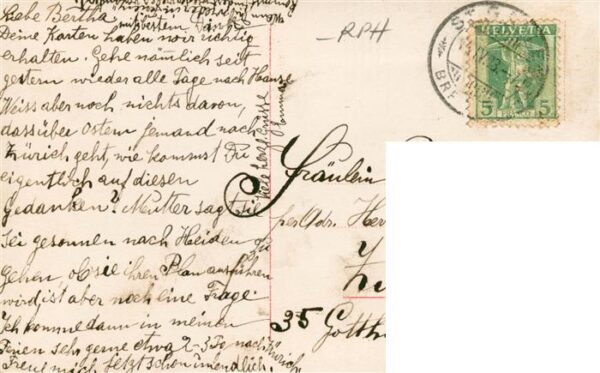 Liebe Bertha
Deine Karten haben wir richtig
erhalten. Gehe nämlich seit
gestern wieder alle Tage nach Hause
Weiss aber noch nichts davon,
dass über Ostern jemand nach
Zürich geht, wie kommst Du
eigentlich auf diesen
Gedanken? Mutter sagt sie
sei gesonnen nach Heiden zu
gehen ob sie ihren Plan ausführen
wird ist aber noch eine Frage
Ich komme dann in meinen
Ferien sehr gerne etwa 2-3 Tg nach Zürich
Freue mich jetzt schon unendlich.
bestem Dank
viele herzl. Grüsse
RPH
HELVETIA
5 5
ST. G
BRF
Fräulein
per Adr. Her
35 Gotth